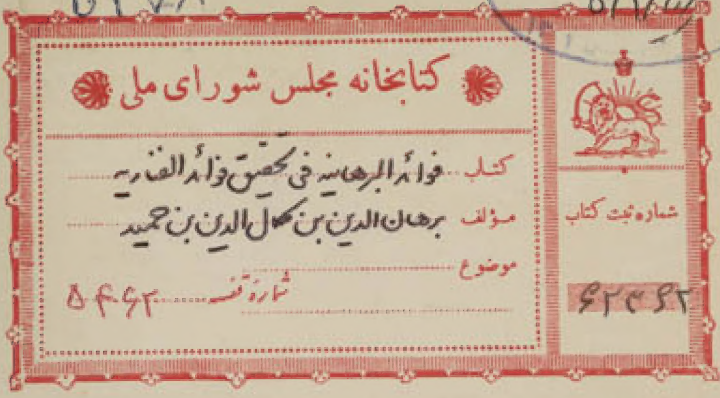 کتابخانه مجلس شورای ملی
کتاب فوائد البرهانیه فی تحقیق فوائد الفناریه
مؤلف برهان الدین بن کمال الدین بن حمید
موضوع
شمارهٔ قفسه ۵۴۶۲
شماره ثبت کتاب
۶۲۳۶۲